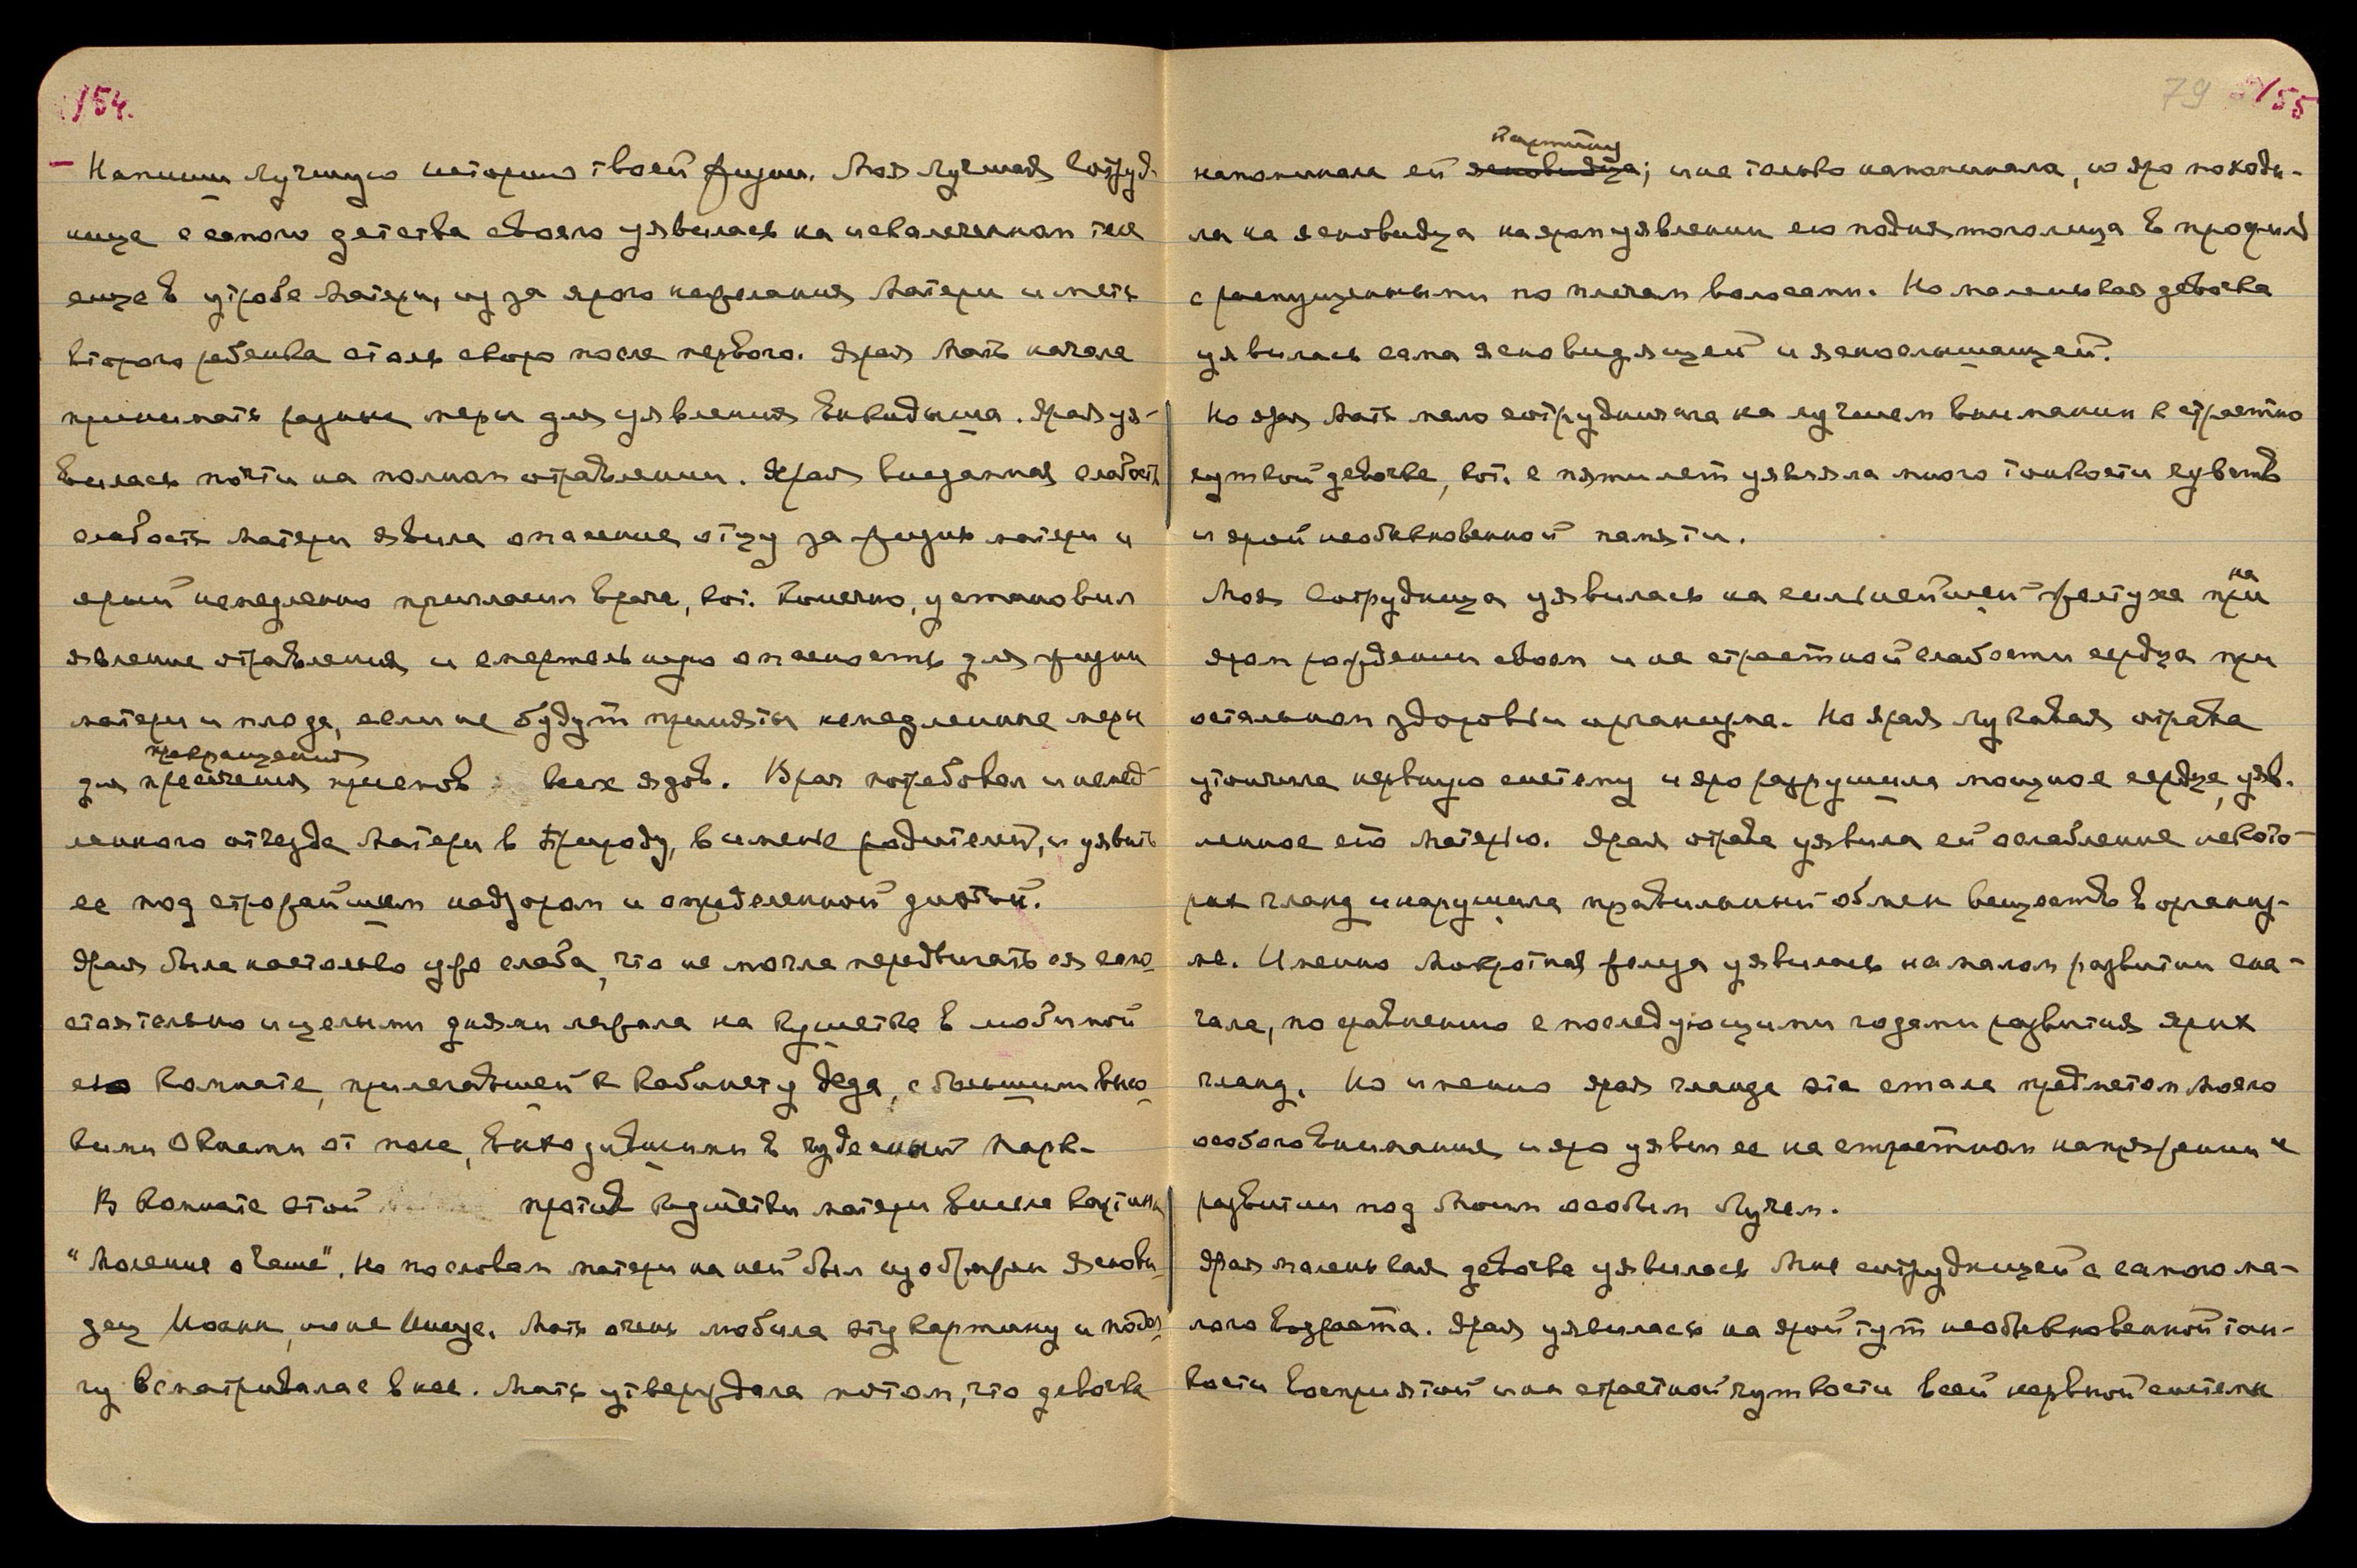 154.
— Напиши лучшую историю твоей жизни. Моя лучшая сотруд-
ница с самого детства своего уявилась на искалеченном теле
еще в утробе Матери, из за ярого нежелания Матери иметь
второго ребенка столь скоро после первого. Ярая Мать начала
принимать разные меры для уявления выкидыша. Ярая уя-
вилась почти на полном отравлении. Ярая внезапная слабость
слабость Матери явила опасение отцу за жизнь матери и
ярый немедленно пригласил врача, кот. конечно, установил
явление отравления и смертельную опасность для жизни
матери и плода, если не будут приняты немедленные меры
прекращения
для пресечения приемов всех ядов. Врач потребовал и немед-
ленного отъезда Матери в природу, в именье родителей, и уявить
ее под строжайшим надзором и определенной диэтой.
Ярая была настолько уже слаба, что не могла передвигаться само-
стоятельно и целыми днями лежала на кушетке в любимой
ею комнате, прилегавшей к кабинету Деда, с большими высо-
кими окнами от пола, выходившими в чудесный парк.
В комнате этой против кушетки матери висела картина
"Моление о Чаше". Но по словам матери на ней был изображен яснови-
дец Иоанн, но не Иисус. Мать очень любила эту картину и подол-
гу всматривалась в нее. Мать утверждала потом, что девочка
79 155
картину
напоминала ей ясновидца; и не только напоминала, но яро походи-
ла на ясновидца на яром уявлении его поднятого лица в профиль
с распущенными по плечам волосами. Но маленькая девочка
уявилась сама ясновидящей и яснослышащей.
Но ярая Мать мало сотрудничала на лучшем внимании к страстно
чуткой девочке, кот. с пяти лет уявляла много тонкости чувств
и ярой необыкновенной памяти.
на
Моя Сотрудница уявилась на сильнейшей желтухе при
яром рождении своем и на страстной слабости сердца при
остальном здоровьи организма. Но ярая лукавая отрава
утончила нервную систему и яро разрушила мощное сердце, уяв-
ленное его Матерью. Ярая отрава уявила ей ослабление некото-
рых гланд и нарушила правильный обмен веществ в организ-
ме. Именно Мокротная железа уявилась на малом развитии сна-
чала, по сравнению с последующими годами развития ярых
гланд. Но именно ярая гланда эта стала предметом Моего
особого внимания и яро уявил ее на страстном напряжении и
развитии под Моим особым Лучем.
Ярая маленькая девочка уявилась Мне сотрудницей с самого ма-
лого возраста. Ярая уявилась на ярой тут необыкновенной тон-
кости восприятий и на страстной чуткости всей нервной системы